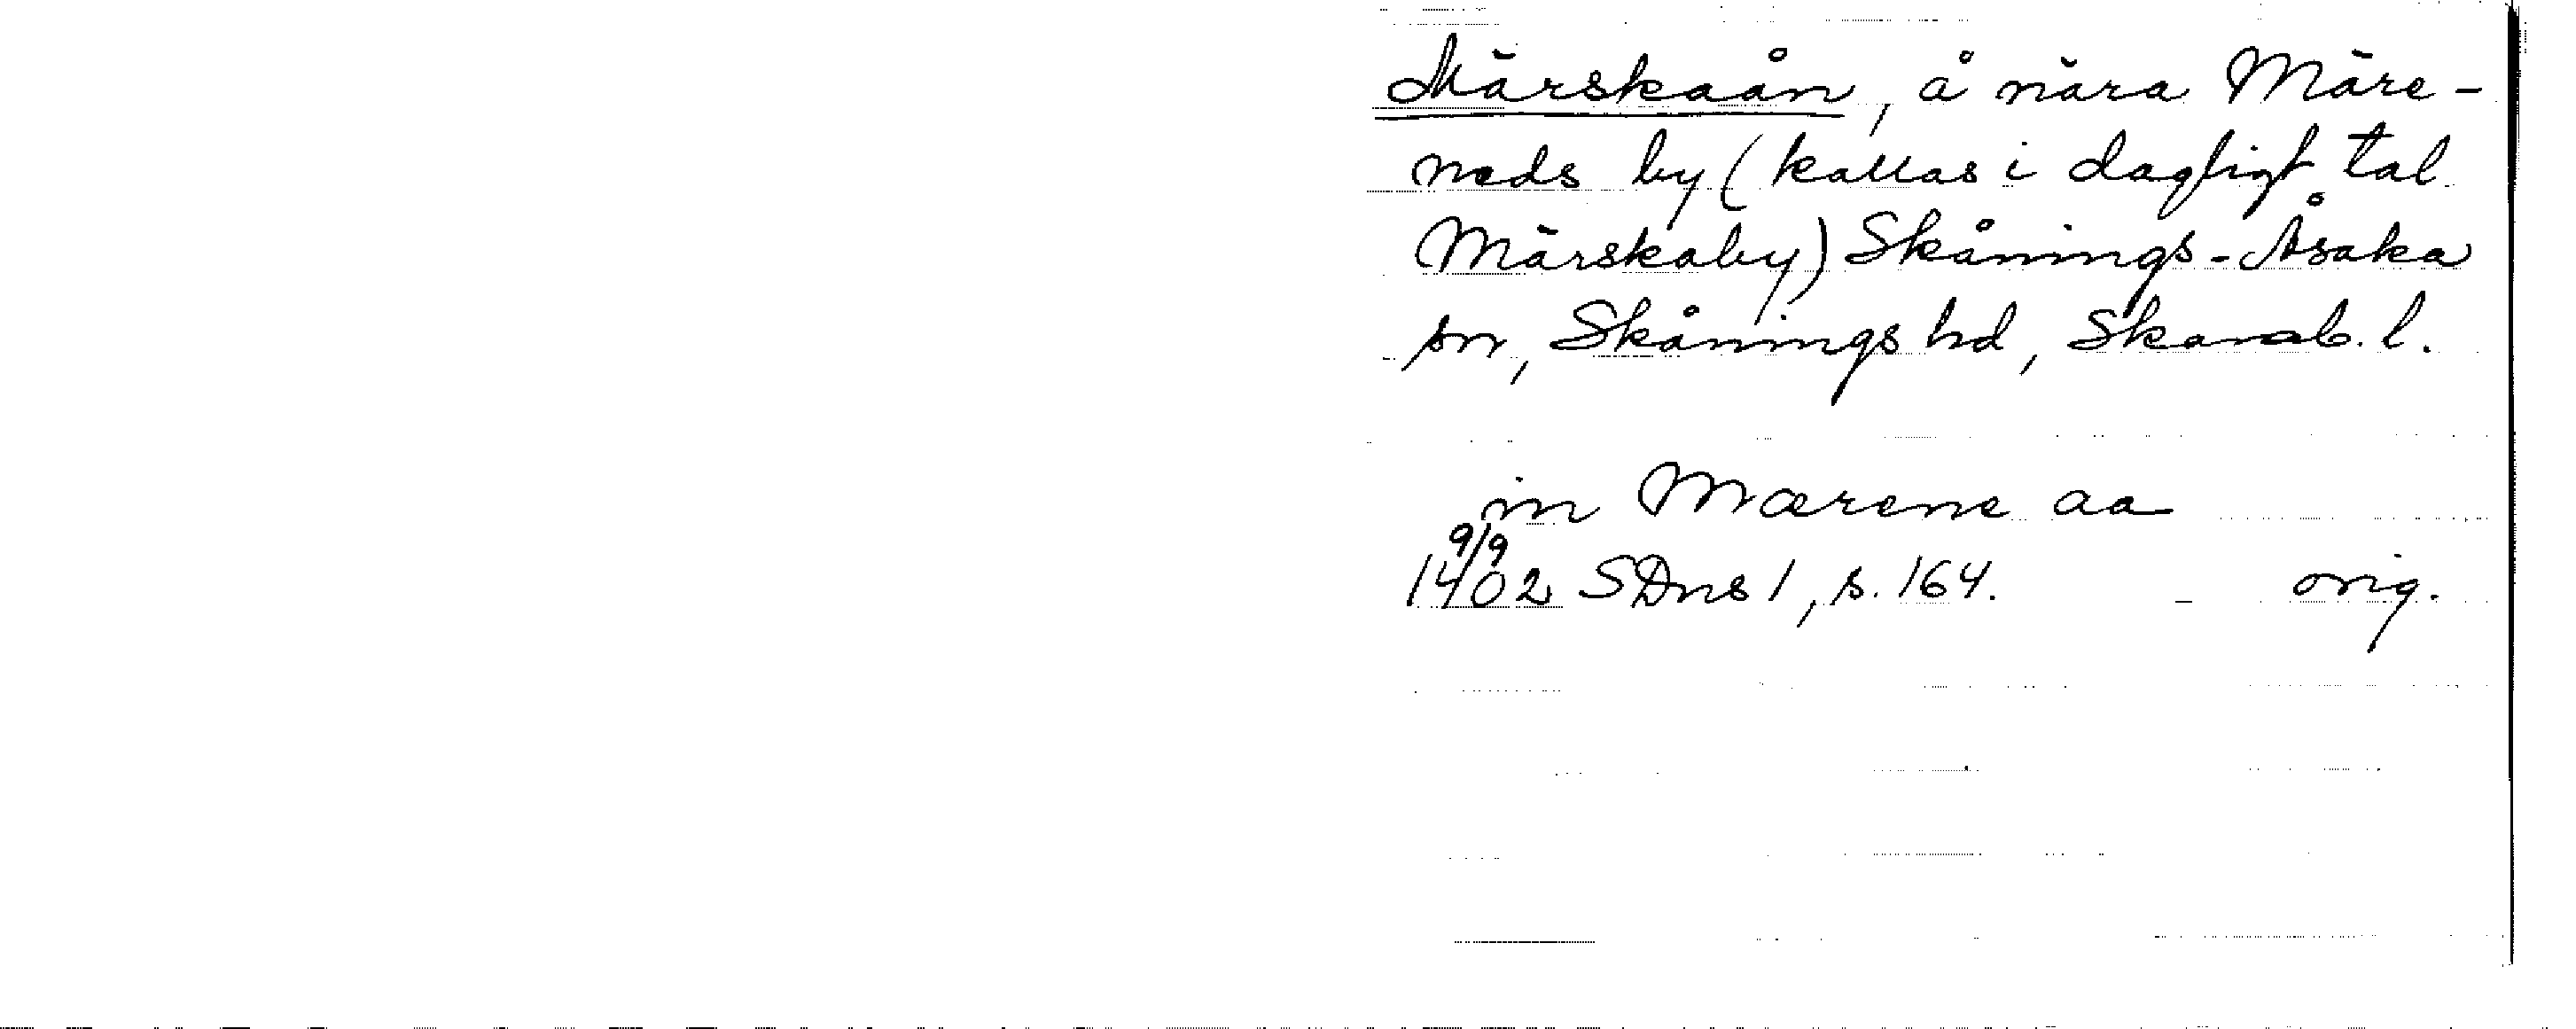 Märskaån, å nära Märe-
neds by (kallas i dagligt tal
Märskaby) Skånings-Åsaka
sn, Skånings hd, Skarab. l.
in Mærene aa
9/9
1402 SDns 1, s. 164. - orig.